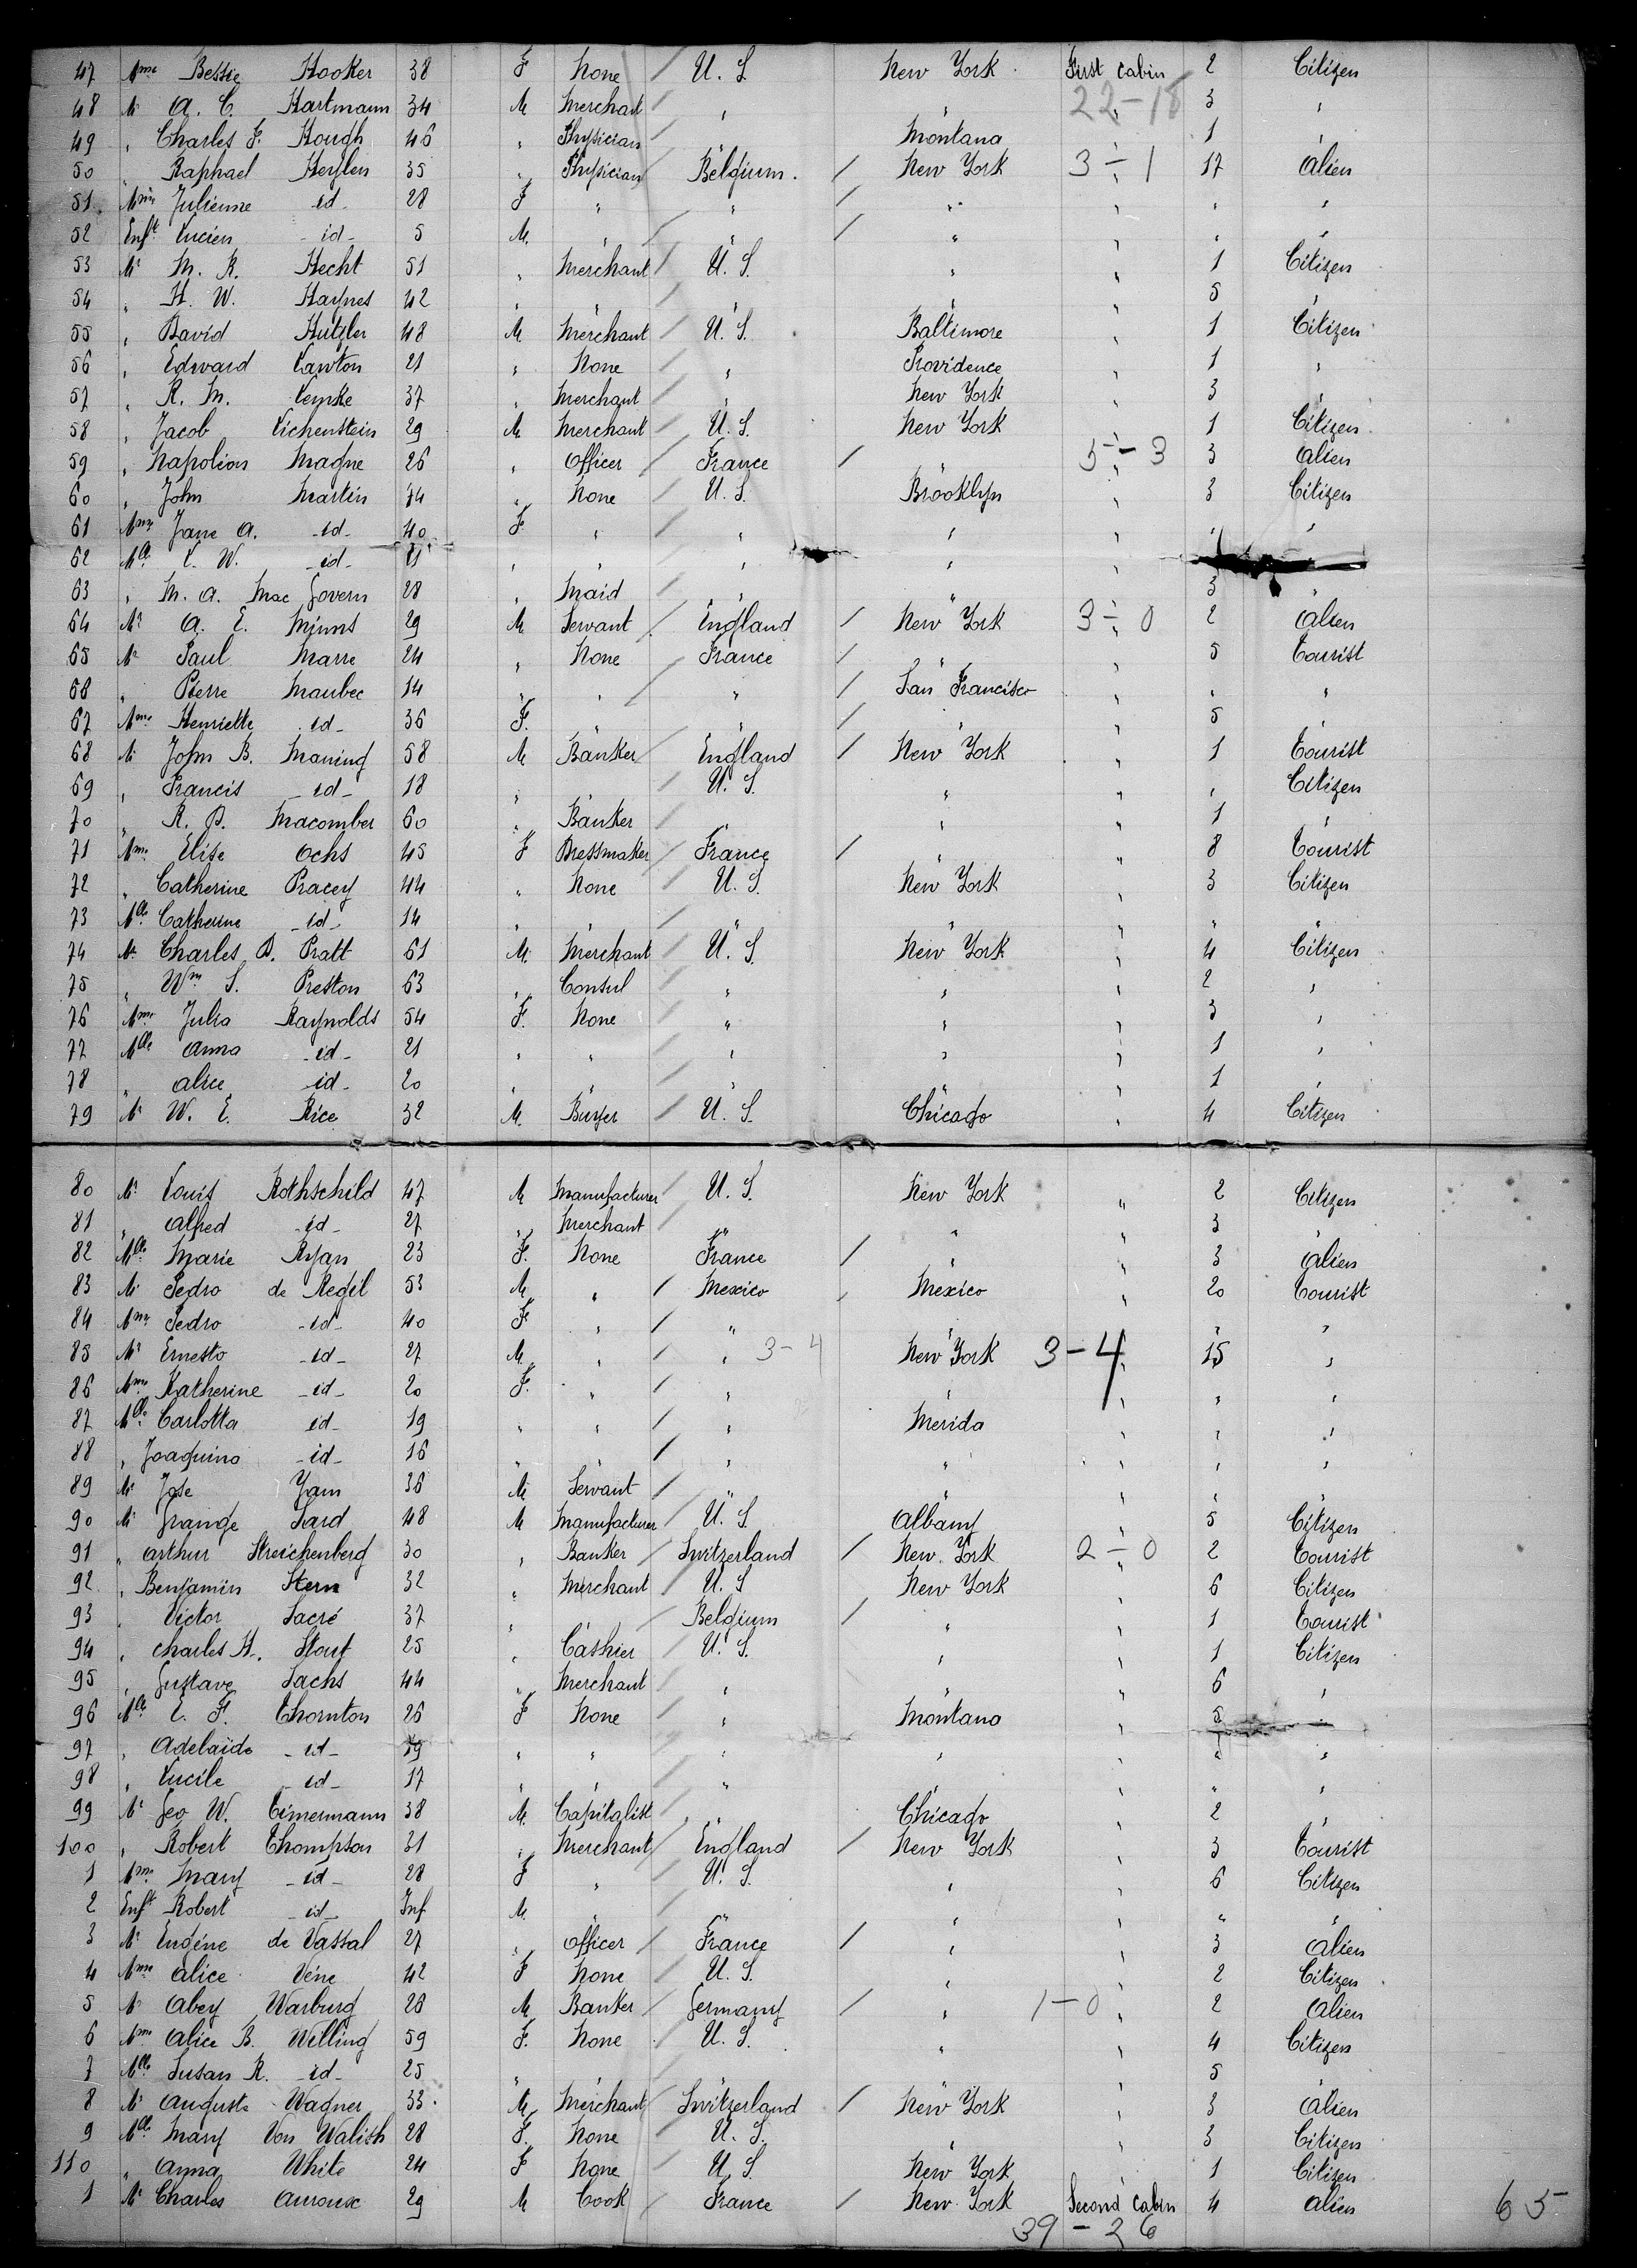 47 Mme Bessie Hooker 38 F None / U. S. New York First cabin 2 Citizen
22-18
48 Mr A. C. Hartmann 34 M Merchant / " " " 3 "
49 " Charles F. Hough 46 " Physician / Montana " 1 "
50 " Raphael Heylen 35 " Physician Belgium. / New York 3-1 " 17 Alien
51. Mme Julienne id- 28 F " " / " " " "
52 Enft Lucien -id- 5 M. " / " / " " " "
53 Mr M. R. Hecht 51 " Merchant / U. S. " " 1 Citizen
54 " H. W. Haynes 42 " " / " " " 5 "
55 " David Hutzler 48 M Merchant / U. S. Baltimore " 1 Citizen
56 " Edward Lawton 21 " None / " Providence " 1 "
57 " R. M. Lemke 37 " Merchant / " New York " 3 "
58 " Jacob Lichenstein 29 M Merchant / U. S. New York " 1 Citizen
59 " Napolion Magne 26 " Officer / France / " 5-3 " 3 Alien
60 " John Martin 74 " None / U. S. Brooklyn " 3 Citizen
61 Mme Jane A. -id- 40 F " " " " " "
62 Mlle L. W. -id- " " " " "
63 " M. A. Mac Govern 28 " Maid " " " 3 "
64 Mr A. E. Minns 29 M Servant / England / New York 3-0 " 2 Alien
65 Mr Paul Marre 24 " None / France / " " 5 Tourist
66 " Pierre Maubec 14 " " / " / San Francisco " " "
67 Mme Henriette -id- 36 F. " " / " " 5 "
68 Mr John B. Maning 58 M Banker / England / New York " 1 Tourist
69 " Francis -id- 18 " U. S. " " " Citizen
70 " R. P. Macomber 60 " Banker / " " " 1 "
71 Mme Elise Ochs 45 F Dressmaker / France / " " 8 Tourist
72 " Catherine Pracey 44 " None / U. S. New York " 3 Citizen
73 Mlle Catherine -id- 14 " " / " " " " "
74 Mr Charles P. Pratt 61 M. Merchant / U. S. New York " 4 Citizen
75 " Wm S. Preston 63 " Consul / " " " 2 "
76 Mme Julia Raynolds 54 F. None / " " " 3 "
77 Mlle Anna -id- 21 " " / " " " 1 "
78 " Alice id- 20 " / " " 1 "
79 Mr W. E. Rice 32 M. Buyer / U. S. Chicago " 4 Citizen
80 Mr Louis Rothschild 47 M Manufacturer / U. S. New York " 2 Citizen
81 " Alfred -id- 27 " Merchant / " " " 3 "
82 Mlle Marie Ryan 23 F. None France / " " 3 Alien
83 Mr Pedro de Regil 53 M " / Mexico / Mexico " 20 Tourist
84 Mme Pedro -id- 40 F " / " " " " "
85 Mr Ernesto -id- 27 M " / " 3-4 New York 3-4 " 15 "
86 Mme Katherine -id- 20 F. " / " " " "
87 Mlle Carlotta id- 19 " " / " Merida " " "
88 " Joaquina -id- 16 " " / " " " " "
89 Mr Jose Yam 36 M Servant / " " " " "
90 Mr Grange Sard 48 M Manufacturer U. S. Albany " 5 Citizen
91 " Arthur Streichenberg 30 " Banker / Switzerland / New York 2-0 " 2 Tourist
92. " Benjamin Stern 32 " Merchant / U. S New York " 6 Citizen
93 " Victor Sacré 37 " / Belgium / " " 1 Tourist
94 " Charles H. Stout 25 " Cashier / U. S. " " 1 Citizen
95 " Gustave Sachs 44 " Merchant / " " " 6 "
96 Mlle E. F. Thornton 26 F None / " Montana " 5 "
97 " Adelaide -id- 19 " " / " " " "
98 " Lucile -id- 17 " " / " " " " "
99 Mr Geo W. Timermann 38 M. Capitalist " Chicago " 2 "
100 " Robert Thompson 31 " Merchant / England / New York " 3 Tourist
1 Mme Mary -id- 28 F " / U. S. " " 6 Citizen
2 Enft Robert -id- Inf M. " / " " " " "
3 Mr Eugène de Vassal 27 " Officer / France / " " 3 Alien
4 Mme Alice Véne 42 F None / U. S. " " 2 Citizen
5 Mr Abey Warburg 26 M Banker / Germany / " 1-0 " 2 Alien
6 Mme Alice B. Willing 59 F. None / U. S. " " 4 Citizen
7 Mlle Susan R. -id- 25 " " / " " " 5 "
8 Mr Auguste Wagner 33. M Merchant / Switzerland / New York " 3 Alien
9 Mlle Mary Von Walish 28 F. None / U. S. " " 3 Citizen
110 " Anna White 24 F None / U. S. New York " 1 Citizen
1 Mr Charles Amousc 29 M Cook / France / New York Second cabin 4 Alien 65
39-26